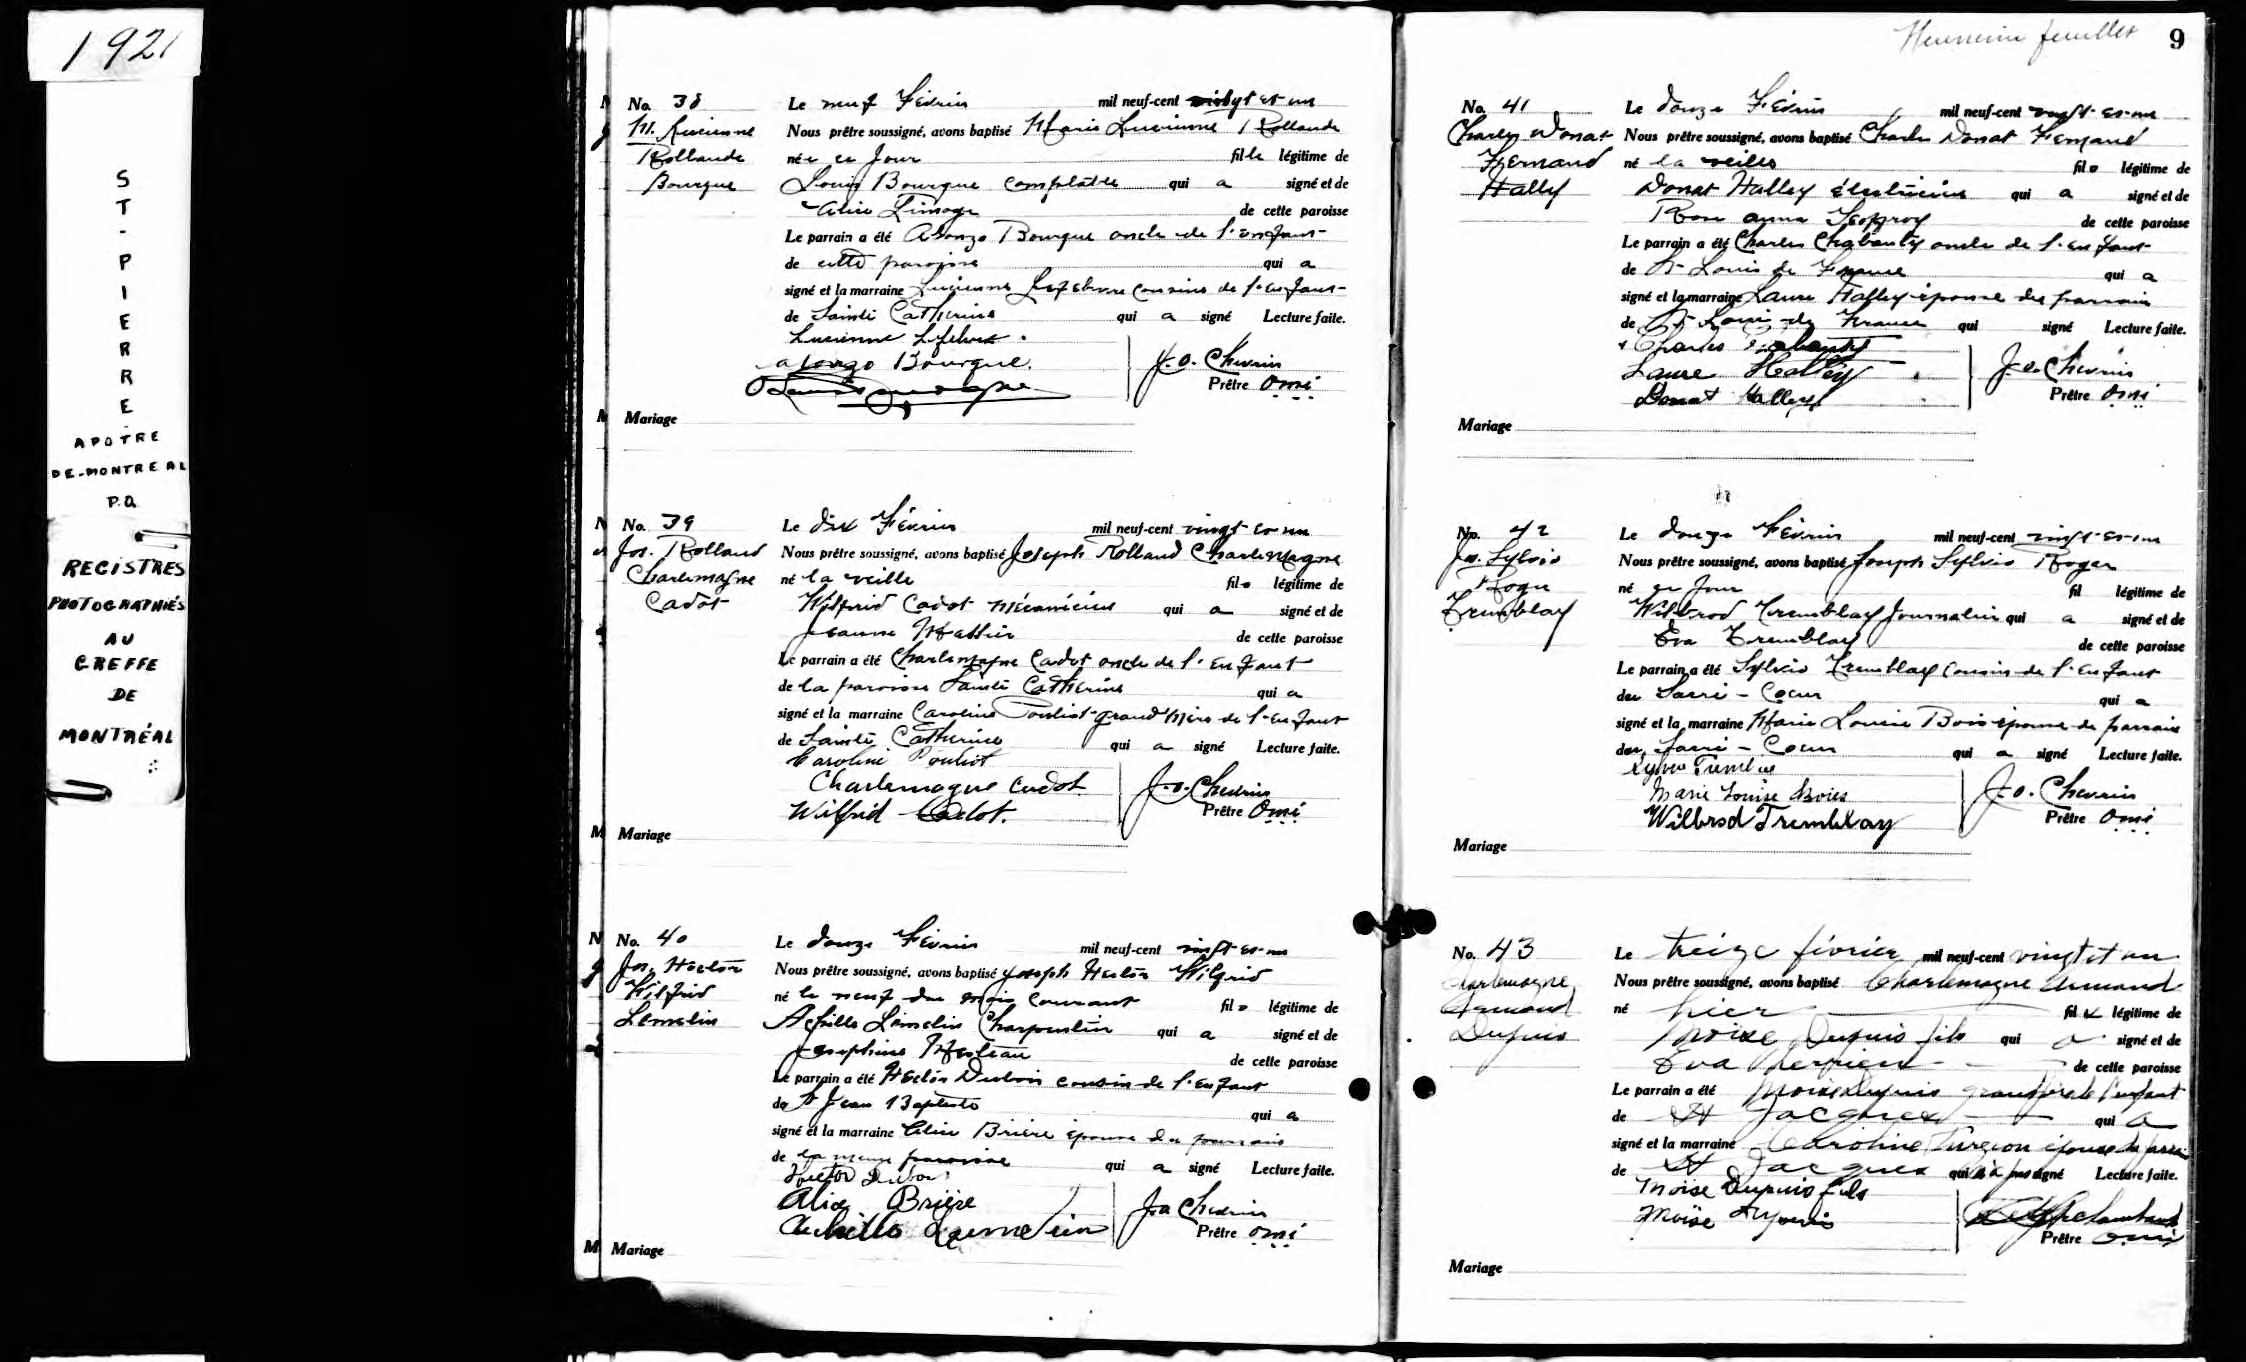 1921
ST-PIERRE
APOTRE
DE-MONTREAL
P.Q.
REGISTRES
PHOTOGRAPHIÉS
AU
GREFFE
DE
MONTRÉAL
No. 38
M. Lucienne
Rollande
Bourque
Le neuf Février mil neuf-cent vingt et un
Nous prêtre soussigné, avons baptisé Marie Lucienne Rollande
née ce Jour fille légitime de
Louis Bourque comptable qui a signé et de
Alice Limoge de cette paroisse
Le parrain a été Alonzo Bourque oncle de l'enfant
de cette paroisse qui a
signé et la marraine Lucienne Lefebvre cousine de l'enfant
de Sainte Catherine qui a signé Lecture faite.
Lucienne Lefebvre
Alonzo Bourque.
J.O. Chevrier
Prêtre Omi
Mariage
No. 39
Jos. Rolland
Charlemagne
Cadot
Le dix Février mil neuf-cent vingt et un
Nous prêtre soussigné, avons baptisé Joseph Rolland Charlemagne
né la veille fils légitime de
Wilfrid Cadot mécanicien qui a signé et de
Jeanne de cette paroisse
Le parrain a été Charlemagne Cadot oncle de l'enfant
de la paroisse Sainte Catherine qui a
signé et la marraine Caroline Pouliot grand'mère de l'enfant
de Sainte Catherine qui a signé Lecture faite.
Caroline Pouliot
Charlemagne Cadot
Wilfrid Cadot.
J.O. Chevrier
Prêtre Omi
Mariage
No. 40
Jos. Hector
Wilfrid
Lemelin
Le douze Février mil neuf-cent vingt et un
Nous prêtre soussigné, avons baptisé Joseph Hector Wilfrid
né le neuf du mois courant fils légitime de
Achille Lemelin Charpentier qui a signé et de
Josephine de cette paroisse
Le parrain a été Hector Dubois cousin de l'enfant
de St Jean Baptiste qui a
signé et la marraine Alice Brière épouse du parrain
de la même paroisse qui a signé Lecture faite.
Hector Dubois
Alice Brière
Achille Lemelin
J.O. Chevrier
Prêtre Omi
Mariage
Neuvième feuillet 9
No. 41
Charles Donat
Fernand
Halley
Le douze Février mil neuf-cent vingt et un
Nous prêtre soussigné, avons baptisé Charles Donat Fernand
né la veille fils légitime de
Donat Halley électricien qui a signé et de
Rose anna Geoffroy de cette paroisse
Le parrain a été Charles Chabauty oncle de l'enfant
de St Louis de France qui a
signé et la marraine Laure Halley épouse du parrain
de St Louis de France qui signé Lecture faite.
Charles Chabauty
Laure Halley
Donat Halley
J.O. Chevrier
Prêtre Omi
Mariage
No. 42
Jos. Sylvio
Roger
Tremblay
Le douze Février mil neuf-cent vingt et un
Nous prêtre soussigné, avons baptisé Joseph Sylvio Roger
né ce Jour fil légitime de
Wilbrod Tremblay Journalier qui a signé et de
Eva Tremblay de cette paroisse
Le parrain a été Sylvio Tremblay cousin de l'enfant
du Sacré-Coeur qui a
signé et la marraine Marie Louise Bois épouse du parrain
du Sacré-Coeur qui a signé Lecture faite.
Marie Louise Boies
Wilbrod Tremblay
J.O. Chevrier
Prêtre Omi
Mariage
No. 43
Charlemagne
Armand
Dupuis
Le treize février mil neuf-cent vingt et un
Nous prêtre soussigné, avons baptisé Charlemagne Armand
né hier fils légitime de
Moïse Dupuis fils qui a signé et de
Eva Perrier de cette paroisse
Le parrain a été Moïse Dupuis grand père de l'enfant
de St Jacques qui a
signé et la marraine Caroline Turgeon épouse du parrain
de St Jacques qui n'a pas signé Lecture faite.
Moïse Dupuis fils
Moïse Dupuis
Prêtre omi
Mariage